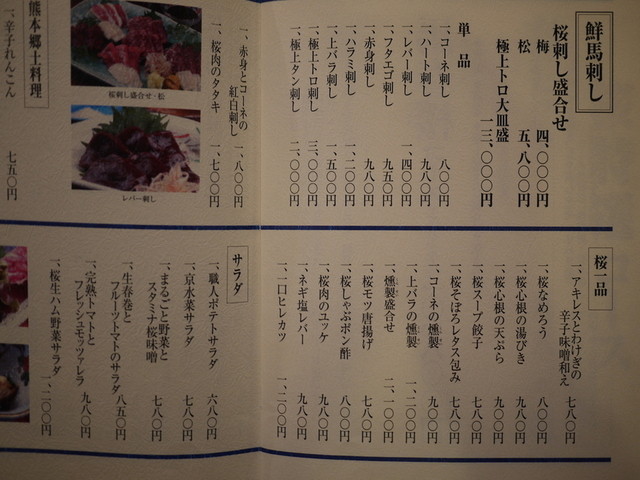 鮮馬刺し
桜刺し盛合せ
梅 四、〇〇〇円
松 五、八〇〇円
極上トロ大皿盛
一三、〇〇〇円
単品
一、コーネ刺し 八〇〇円
一、ハート刺し 九八〇円
一、レバー刺し 一、四〇〇円
一、フタエゴ刺し 九五〇円
一、赤身刺し 九八〇円
一、ハラミ刺し 一、二〇〇円
一、上バラ刺し 一、五〇〇円
一、極上トロ刺し 三、〇〇〇円
一、極上タン刺し 二、〇〇〇円
一、赤身とコーネの
紅白刺し 一、八〇〇円
一、桜肉のタタキ 一、七〇〇円
桜刺し盛合せ・松
レバー刺し
熊本郷土料理
一、辛子れんこん 七五〇円
桜一品
一、アキレスとわけぎの
辛子味噌和え 七八〇円
一、桜なめろう 八〇〇円
一、桜心根の湯びき 九八〇円
一、桜心根の天ぷら 九〇〇円
一、桜スープ餃子 七八〇円
一、桜そぼろレタス包み 七八〇円
一、コーネの燻製 九八〇円
一、上バラの燻製 一、二〇〇円
一、燻製盛合せ 二、一〇〇円
一、桜モツ唐揚げ 七八〇円
一、桜しゃぶポン酢 八〇〇円
一、桜肉のユッケ 九八〇円
一、ネギ塩レバー 九八〇円
一、一口ヒレカツ 一、二〇〇円
サラダ
一、職人ポテトサラダ 六八〇円
一、京水菜サラダ 七八〇円
一、まるごと野菜と
スタミナ桜味噌 七八〇円
一、生春巻と
フルーツトマトのサラダ 八五〇円
一、完熟トマトと
フレッシュモッツァレラ 九八〇円
一、桜生ハム野菜サラダ 一、二〇〇円